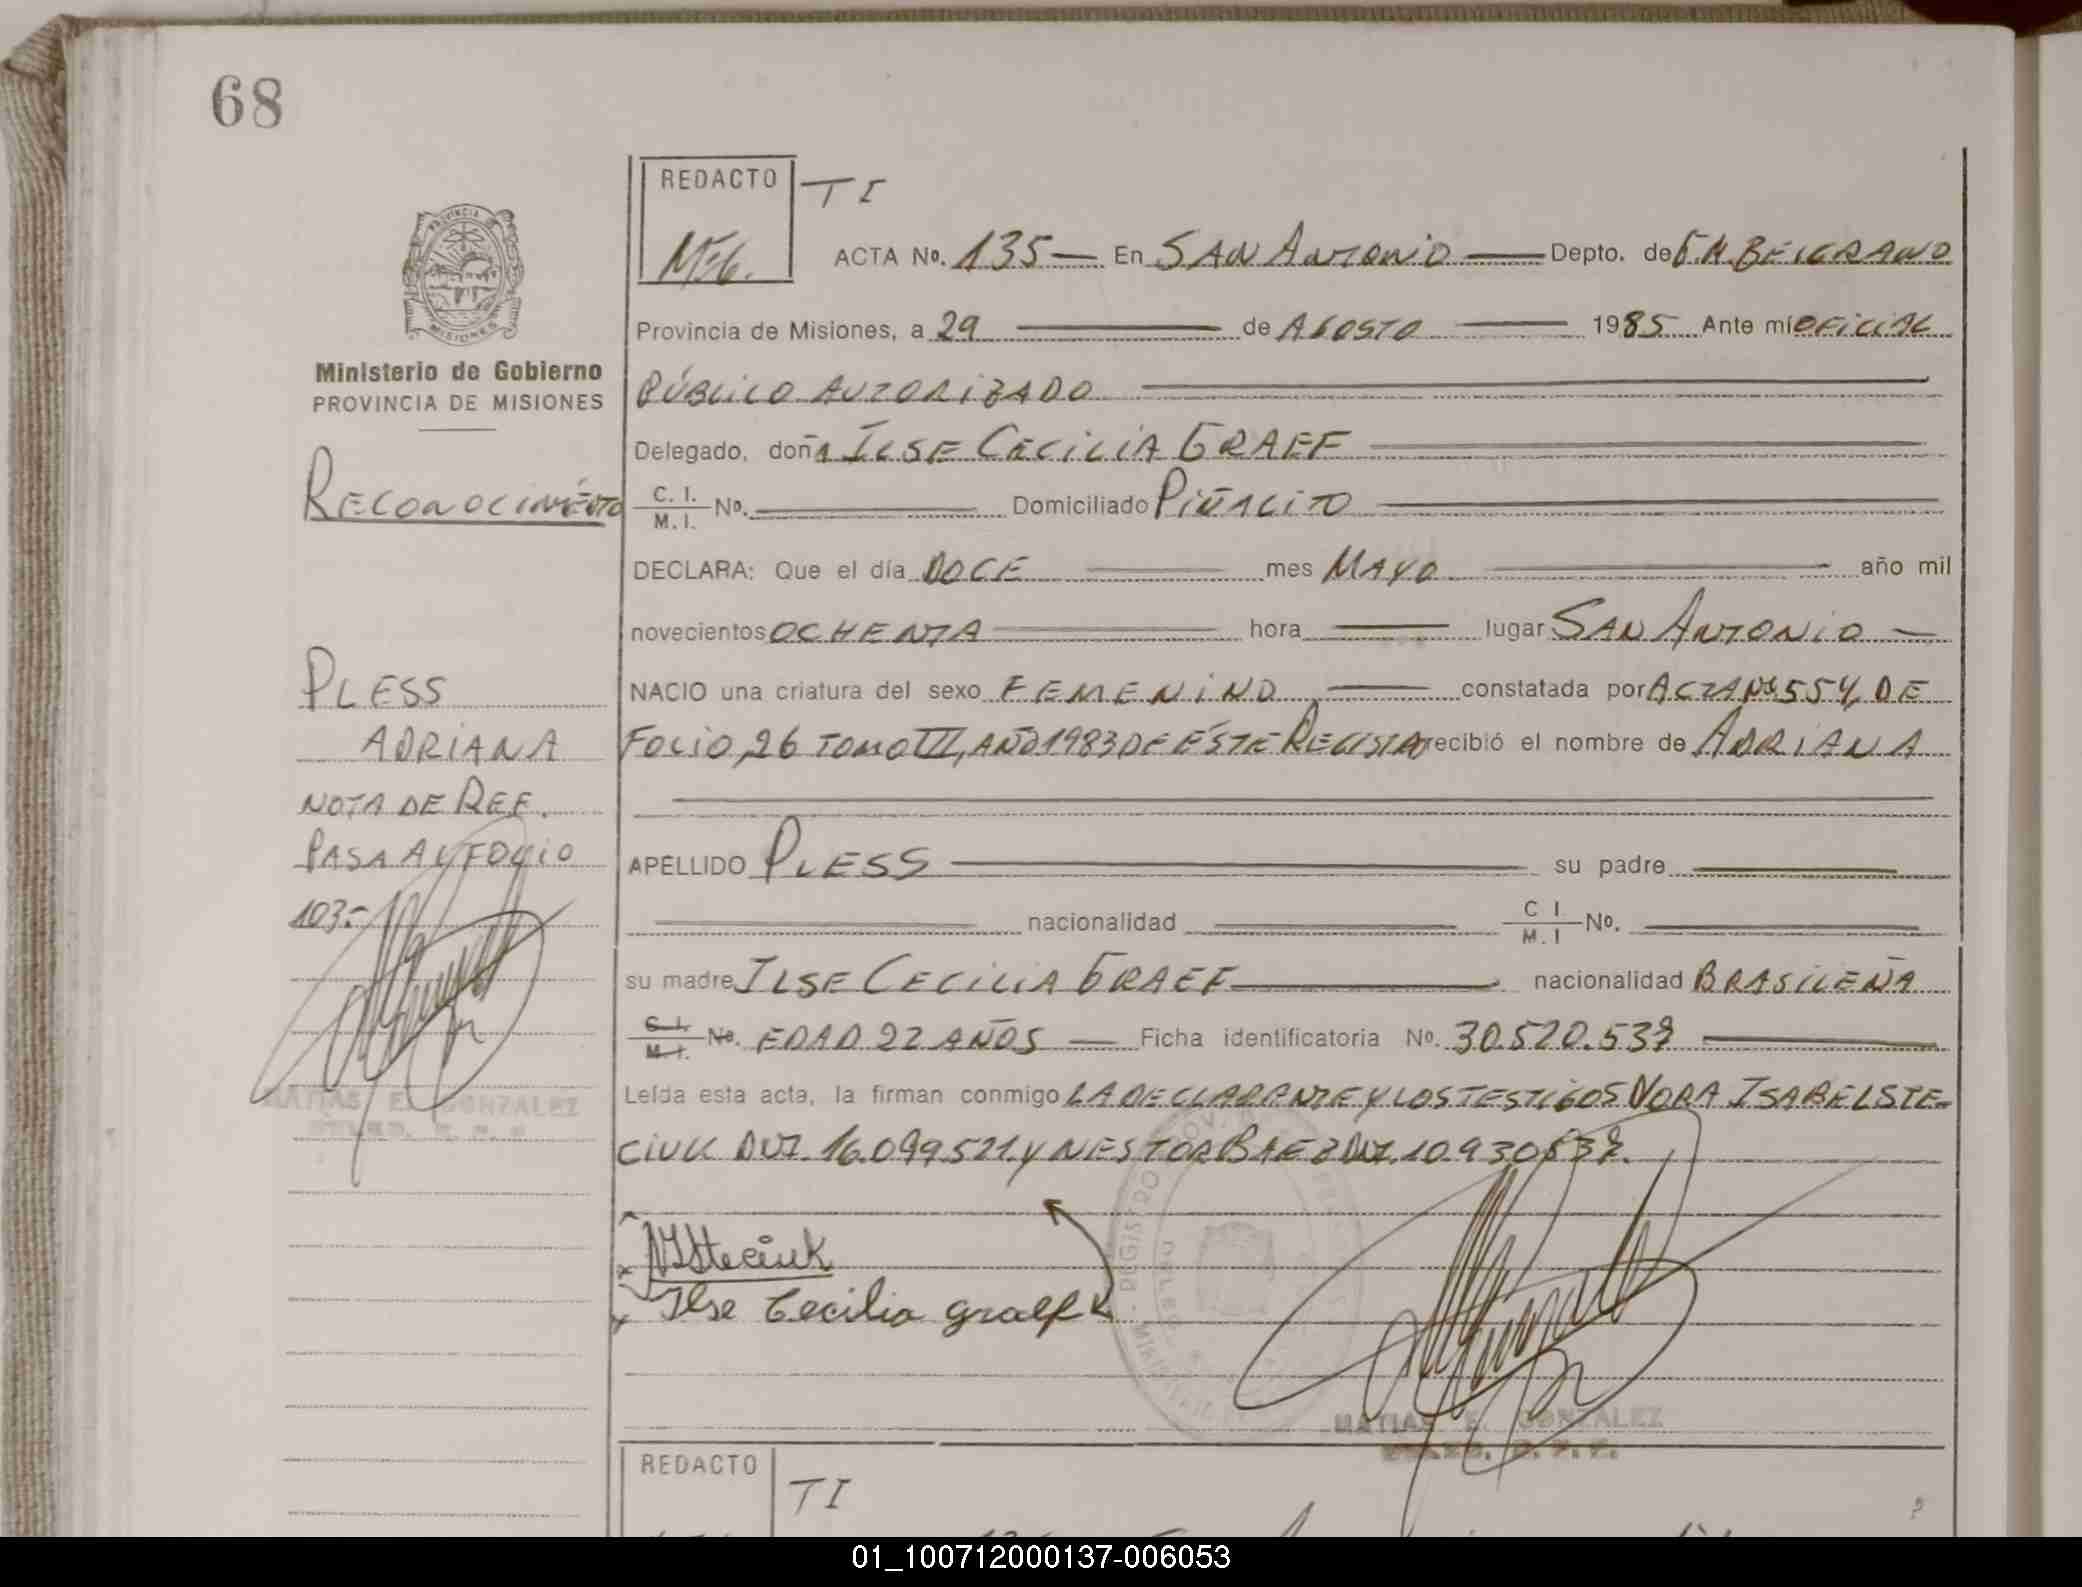 68
REDACTO
TI
ACTA Nº. 135 En SAN ANTONIO Depto. de G.M. BELGRANO
Provincia de Misiones, a 29 de AGOSTO 1985 Ante mí OFICIAL
PÚBLICO AUTORIZADO
Delegado, doña ILSE CECILIA GRAEF
C. I. M. I. Nº. Domiciliado PIÑALITO
DECLARA: Que el día DOCE mes MAYO año mil
novecientos OCHENTA hora lugar SAN ANTONIO
NACIO una criatura del sexo FEMENINO constatada por ACTA Nº 554, DE
FOLIO, 26 TOMO III, AÑO 1983 DE ÉSTE REGISTRO recibió el nombre de ADRIANA
APELLIDO PLESS su padre
nacionalidad C I M. I Nº.
su madre ILSE CECILIA GRAEF nacionalidad BRASILEÑA
C. I. M. I. Nº. EDAD 22 AÑOS Ficha identificatoria Nº. 30.520.537
Leída esta acta, la firman conmigo LA DECLARANTE Y LOS TESTIGOS NORA ISABEL STE-
CIUK DNI. 16.099.521. Y NESTOR BAEZ DNI. 10.930.537.
NISteciuk
Ilse Cecilia Graef
MATIAS E. GONZALEZ
REDACTO
TI
PROVINCIA DE
MISIONES
Ministerio de Gobierno
PROVINCIA DE MISIONES
RECONOCIMIENTO
PLESS
ADRIANA
NOTA DE REF.
PASA AL FOLIO
103.-
MATIAS E. GONZALEZ
01_100712000137-006053